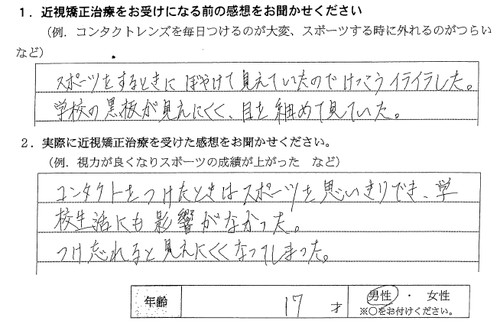 1．近視矯正治療をお受けになる前の感想をお聞かせください
（例．コンタクトレンズを毎日つけるのが大変、スポーツする時に外れるのがつらい
など）
スポーツをするときに ぼやけて見えていたのでけっこうイライラした。
学校の黒板が見えにくく、目を細めて見ていた。
2．実際に近視矯正治療を受けた感想をお聞かせください。
（例．視力が良くなりスポーツの成績が上がった　など）
コンタクトをつけたときはスポーツを思いきりでき、学
校生活にも影響がなかった。
つけ忘れると見えにくくなってしまった。
年齢　17 才　男性 ・ 女性
※○をお付けください。